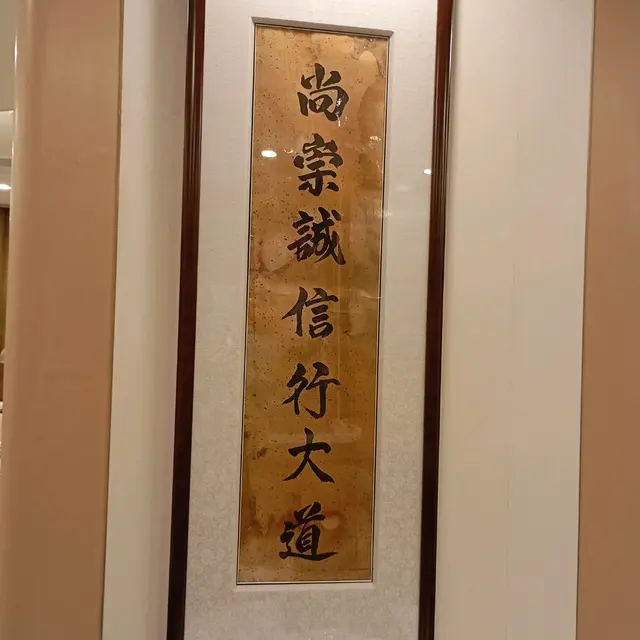 尚崇誠信行大道